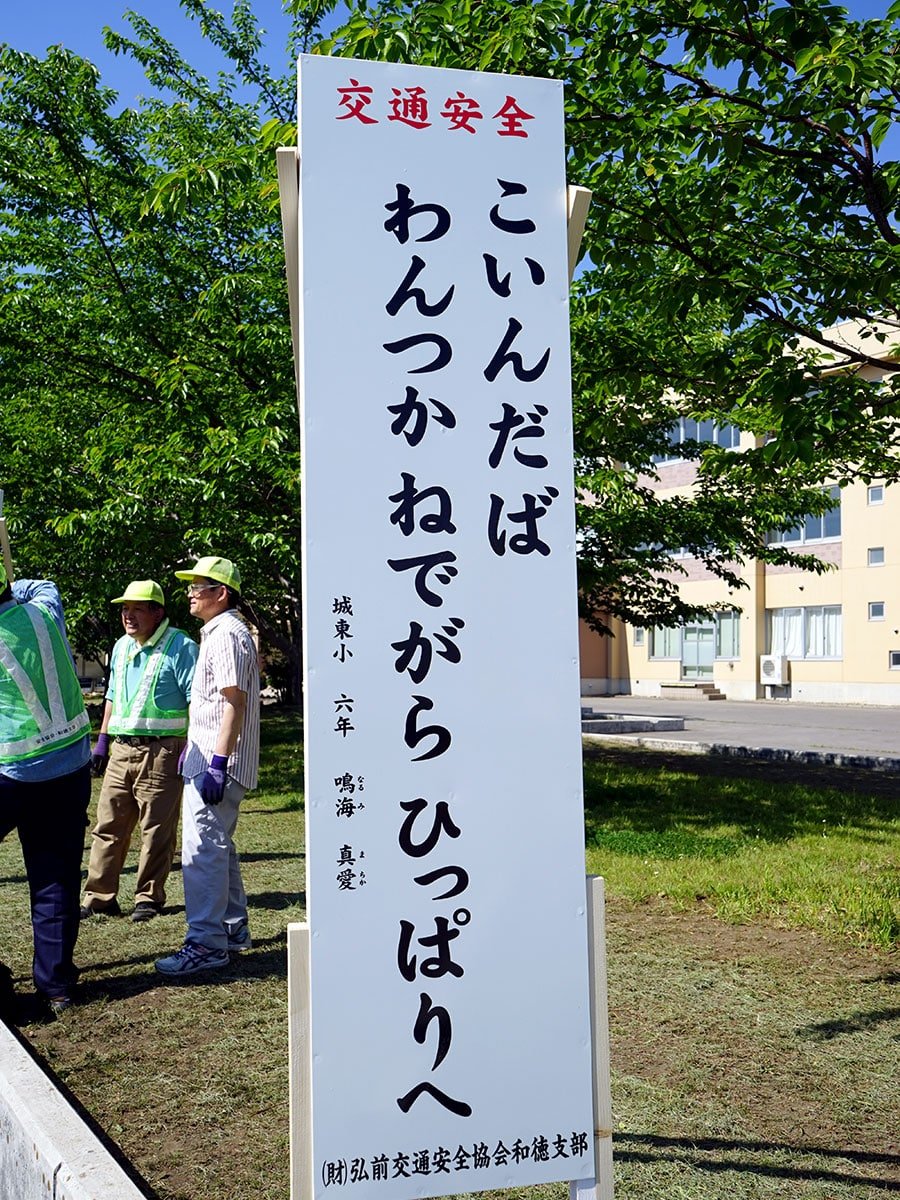 交通安全
こいんだば
わんつかねでがら ひっぱりへ
城東小 六年 鳴海 真愛
なるみ まちか
(財)弘前交通安全協会和徳支部